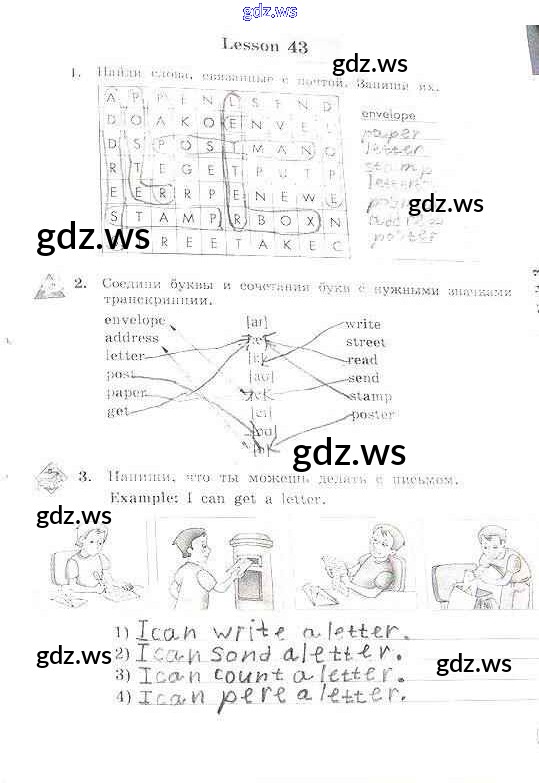 gdz.ws
Lesson 43
gdz.ws
1. Найди слова, связанные с почтой. Запиши их.
A P P E N L S E N D
D O A K O E N V E L
D S P O S T M A N O
R T E G E T P U T P
E E R R P E N E W E
S T A M P R B O X N
S T R E E T A K E C
envelope
paper
letter
stamp
gdz.ws
gdz.ws
2. Соедини буквы и сочетания букв с нужными значками транскрипции.
envelope
address
letter
post
paper
get
write
street
read
send
stamp
poster
gdz.ws
3. Напиши, что ты можешь делать с письмом.
Example: I can get a letter.
gdz.ws
gdz.ws
1) I can write a letter.
2) I can sond a letter.
3) I can count a letter.
4) I can pere a letter.
gdz.ws
gdz.ws